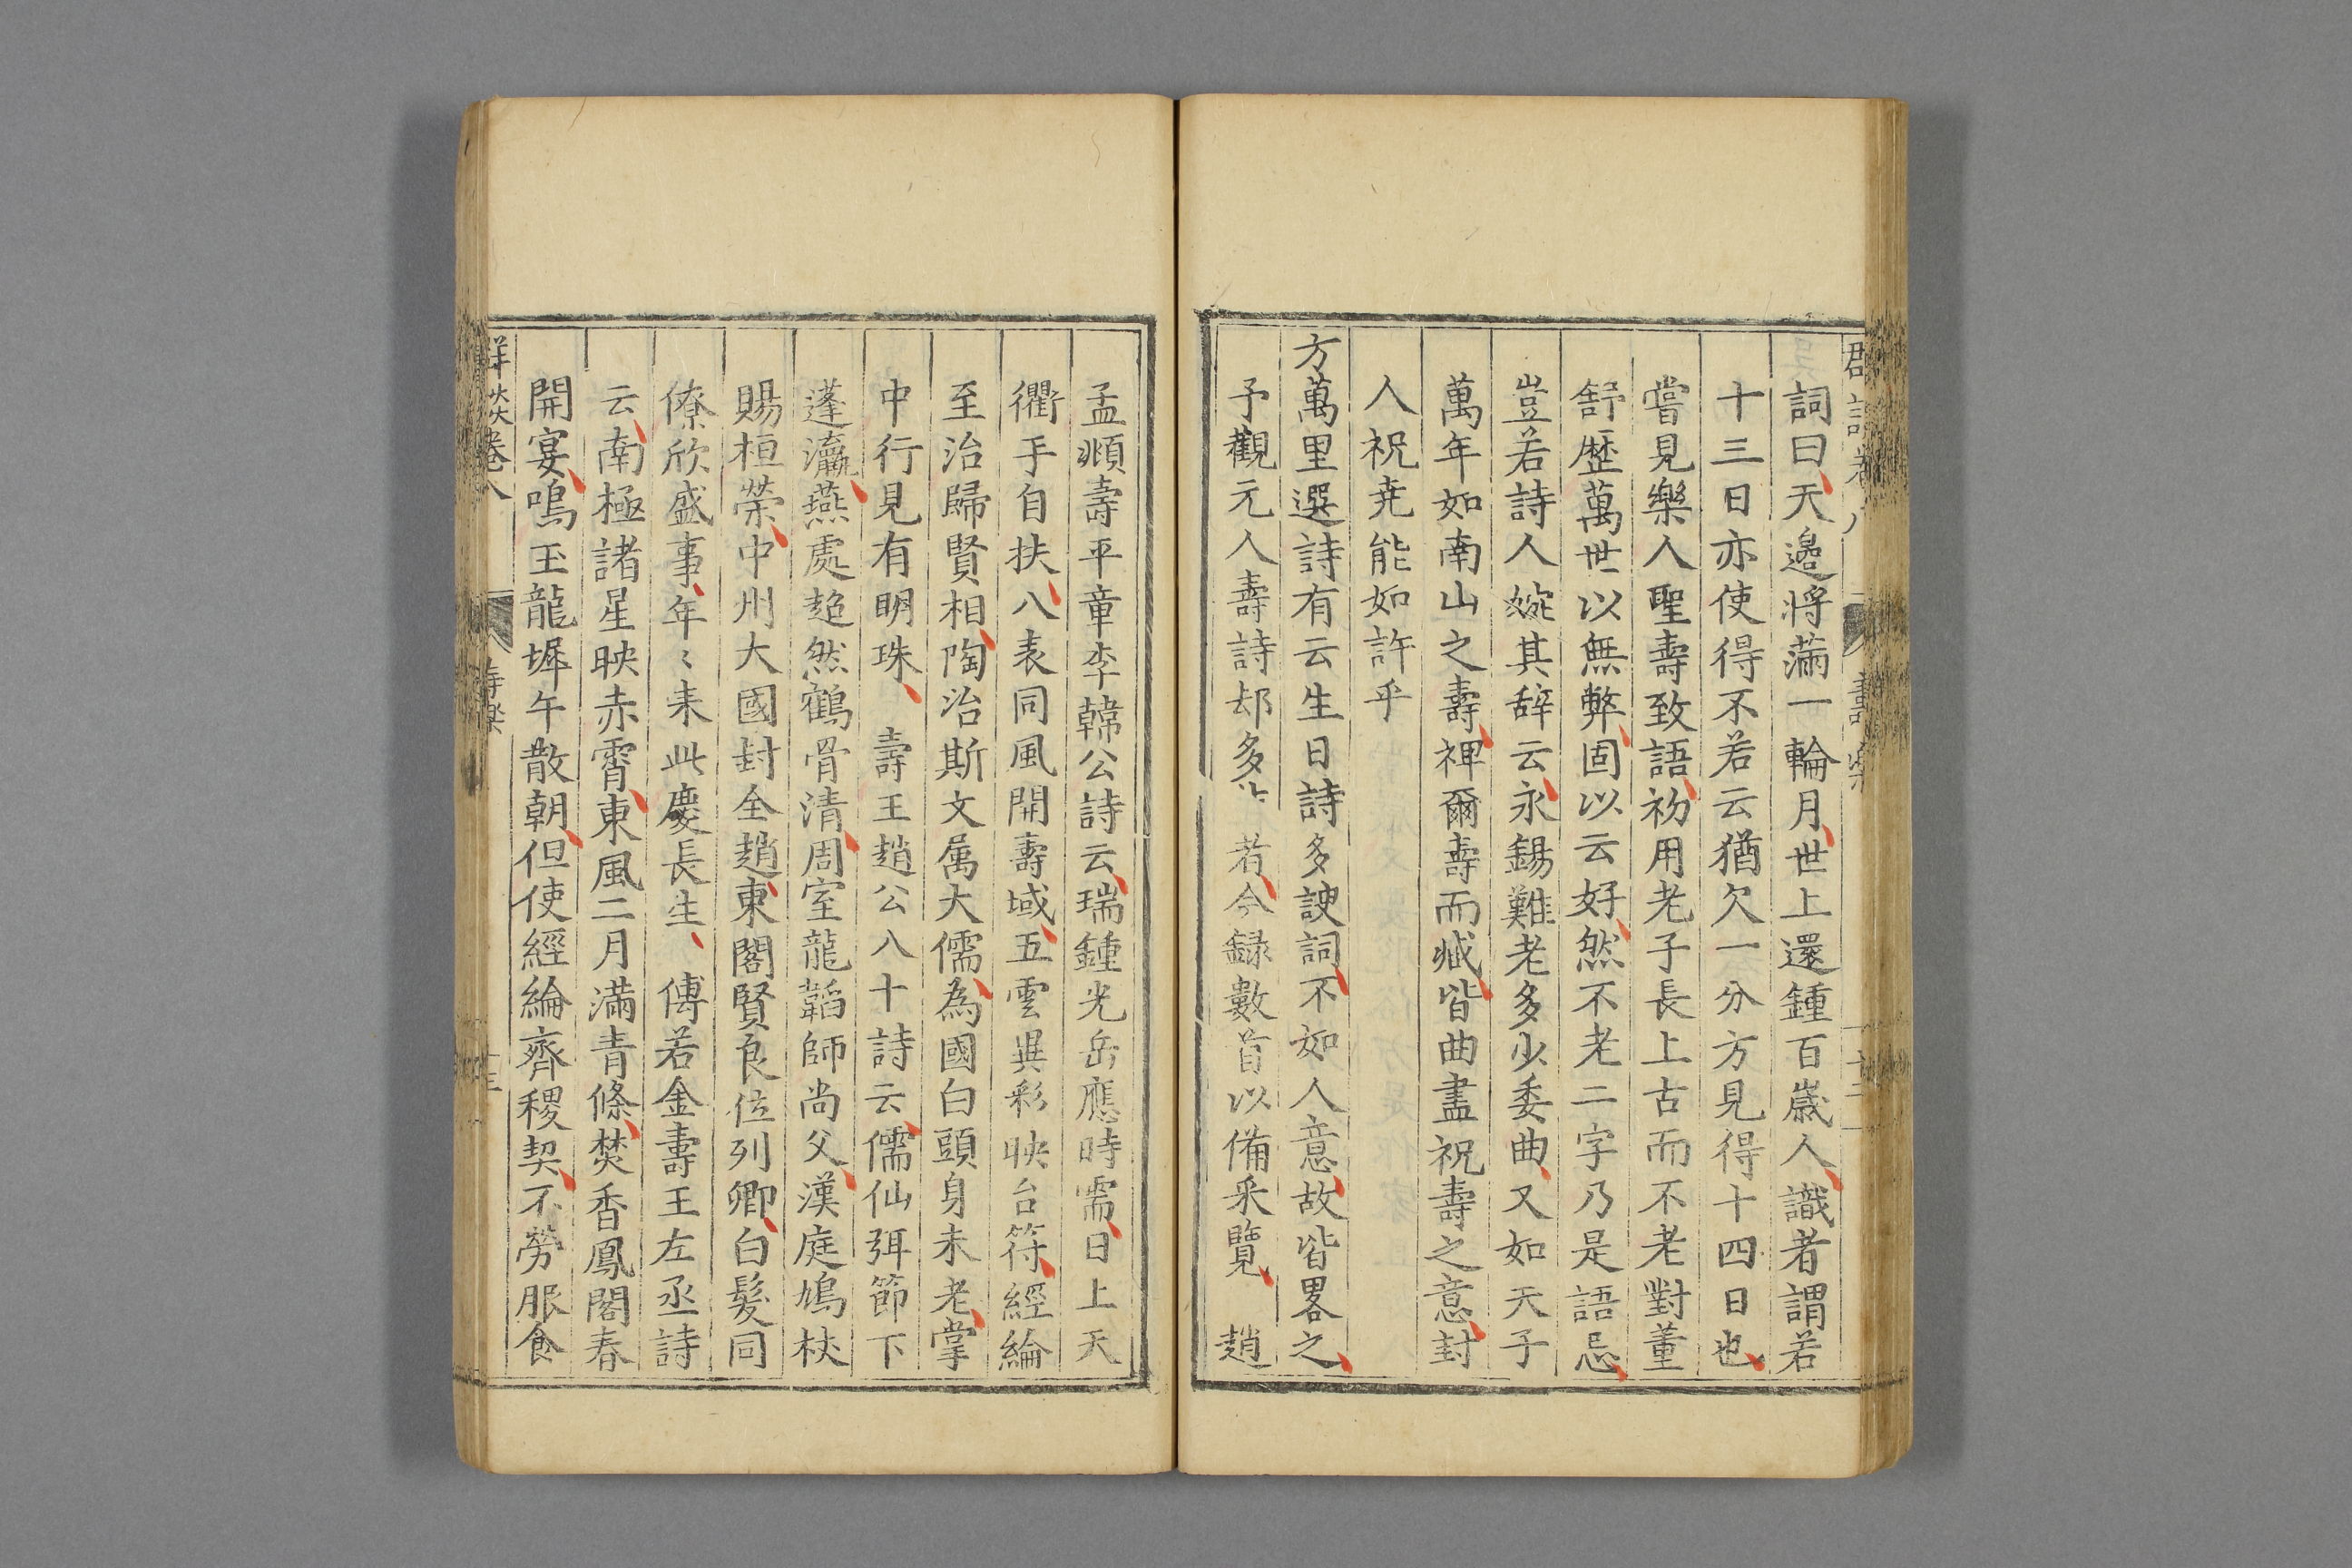 詞曰天邉將滿一輪月世上還鍾百歳人識者謂若
十三日亦使得不若云猶欠一分方見得十四日也
嘗見樂人聖壽致語初用老子長上古而不老對董
舒歷萬世以無弊固以云好然不老二字乃是語忌
豈若詩人婉其辞云永錫難老多少委曲又如天子
萬年如南山之壽裨爾壽而臧皆曲盡祝壽之意封
人祝尭能如許乎
方萬里選詩有云生日詩多諛詞不如人意故皆畧之
予觀元人壽詩却多 者今録數首以備采覽 趙
孟頫壽平章李韓公詩云瑞鍾光岳應時需日上天
衢手自扶八表同風開壽域五雲異彩映台符經綸
至治歸賢相陶冶斯文属大儒為國白頭身未老掌
中行見有明珠 壽王趙公八十詩云儒仙弭節下
蓬瀛燕處超然鶴骨清周室龍韜師尚父漢庭鳩杖
賜桓榮中州大國封全趙東閣賢良位列卿白髮同
僚欣盛事年〻来此慶長生 傅若金壽王左丞詩
云南極諸星映赤霄東風二月滿青條焚香鳳閣春
開宴鳴玉龍墀午散朝但使經綸齊稷契不勞服食